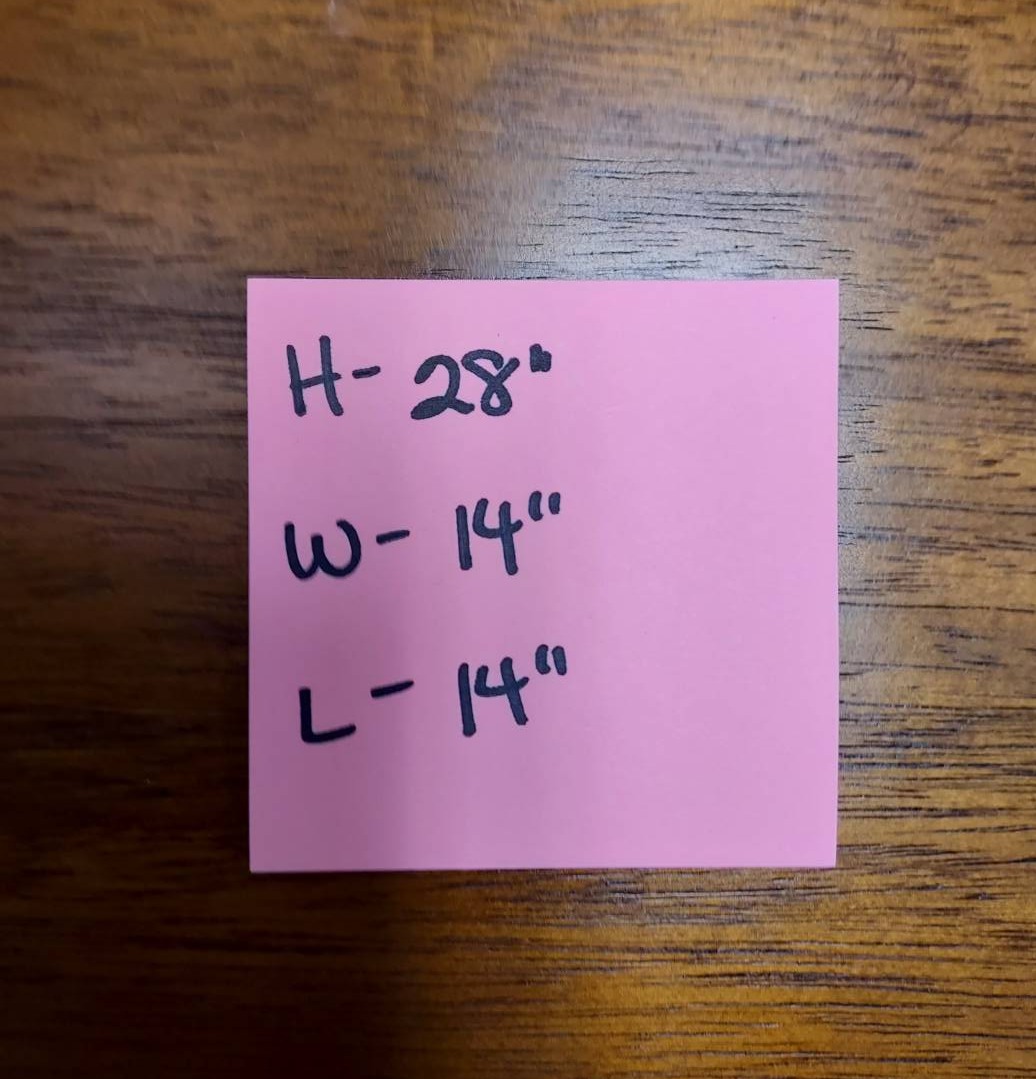 H- 28"
W- 14"
L- 14"